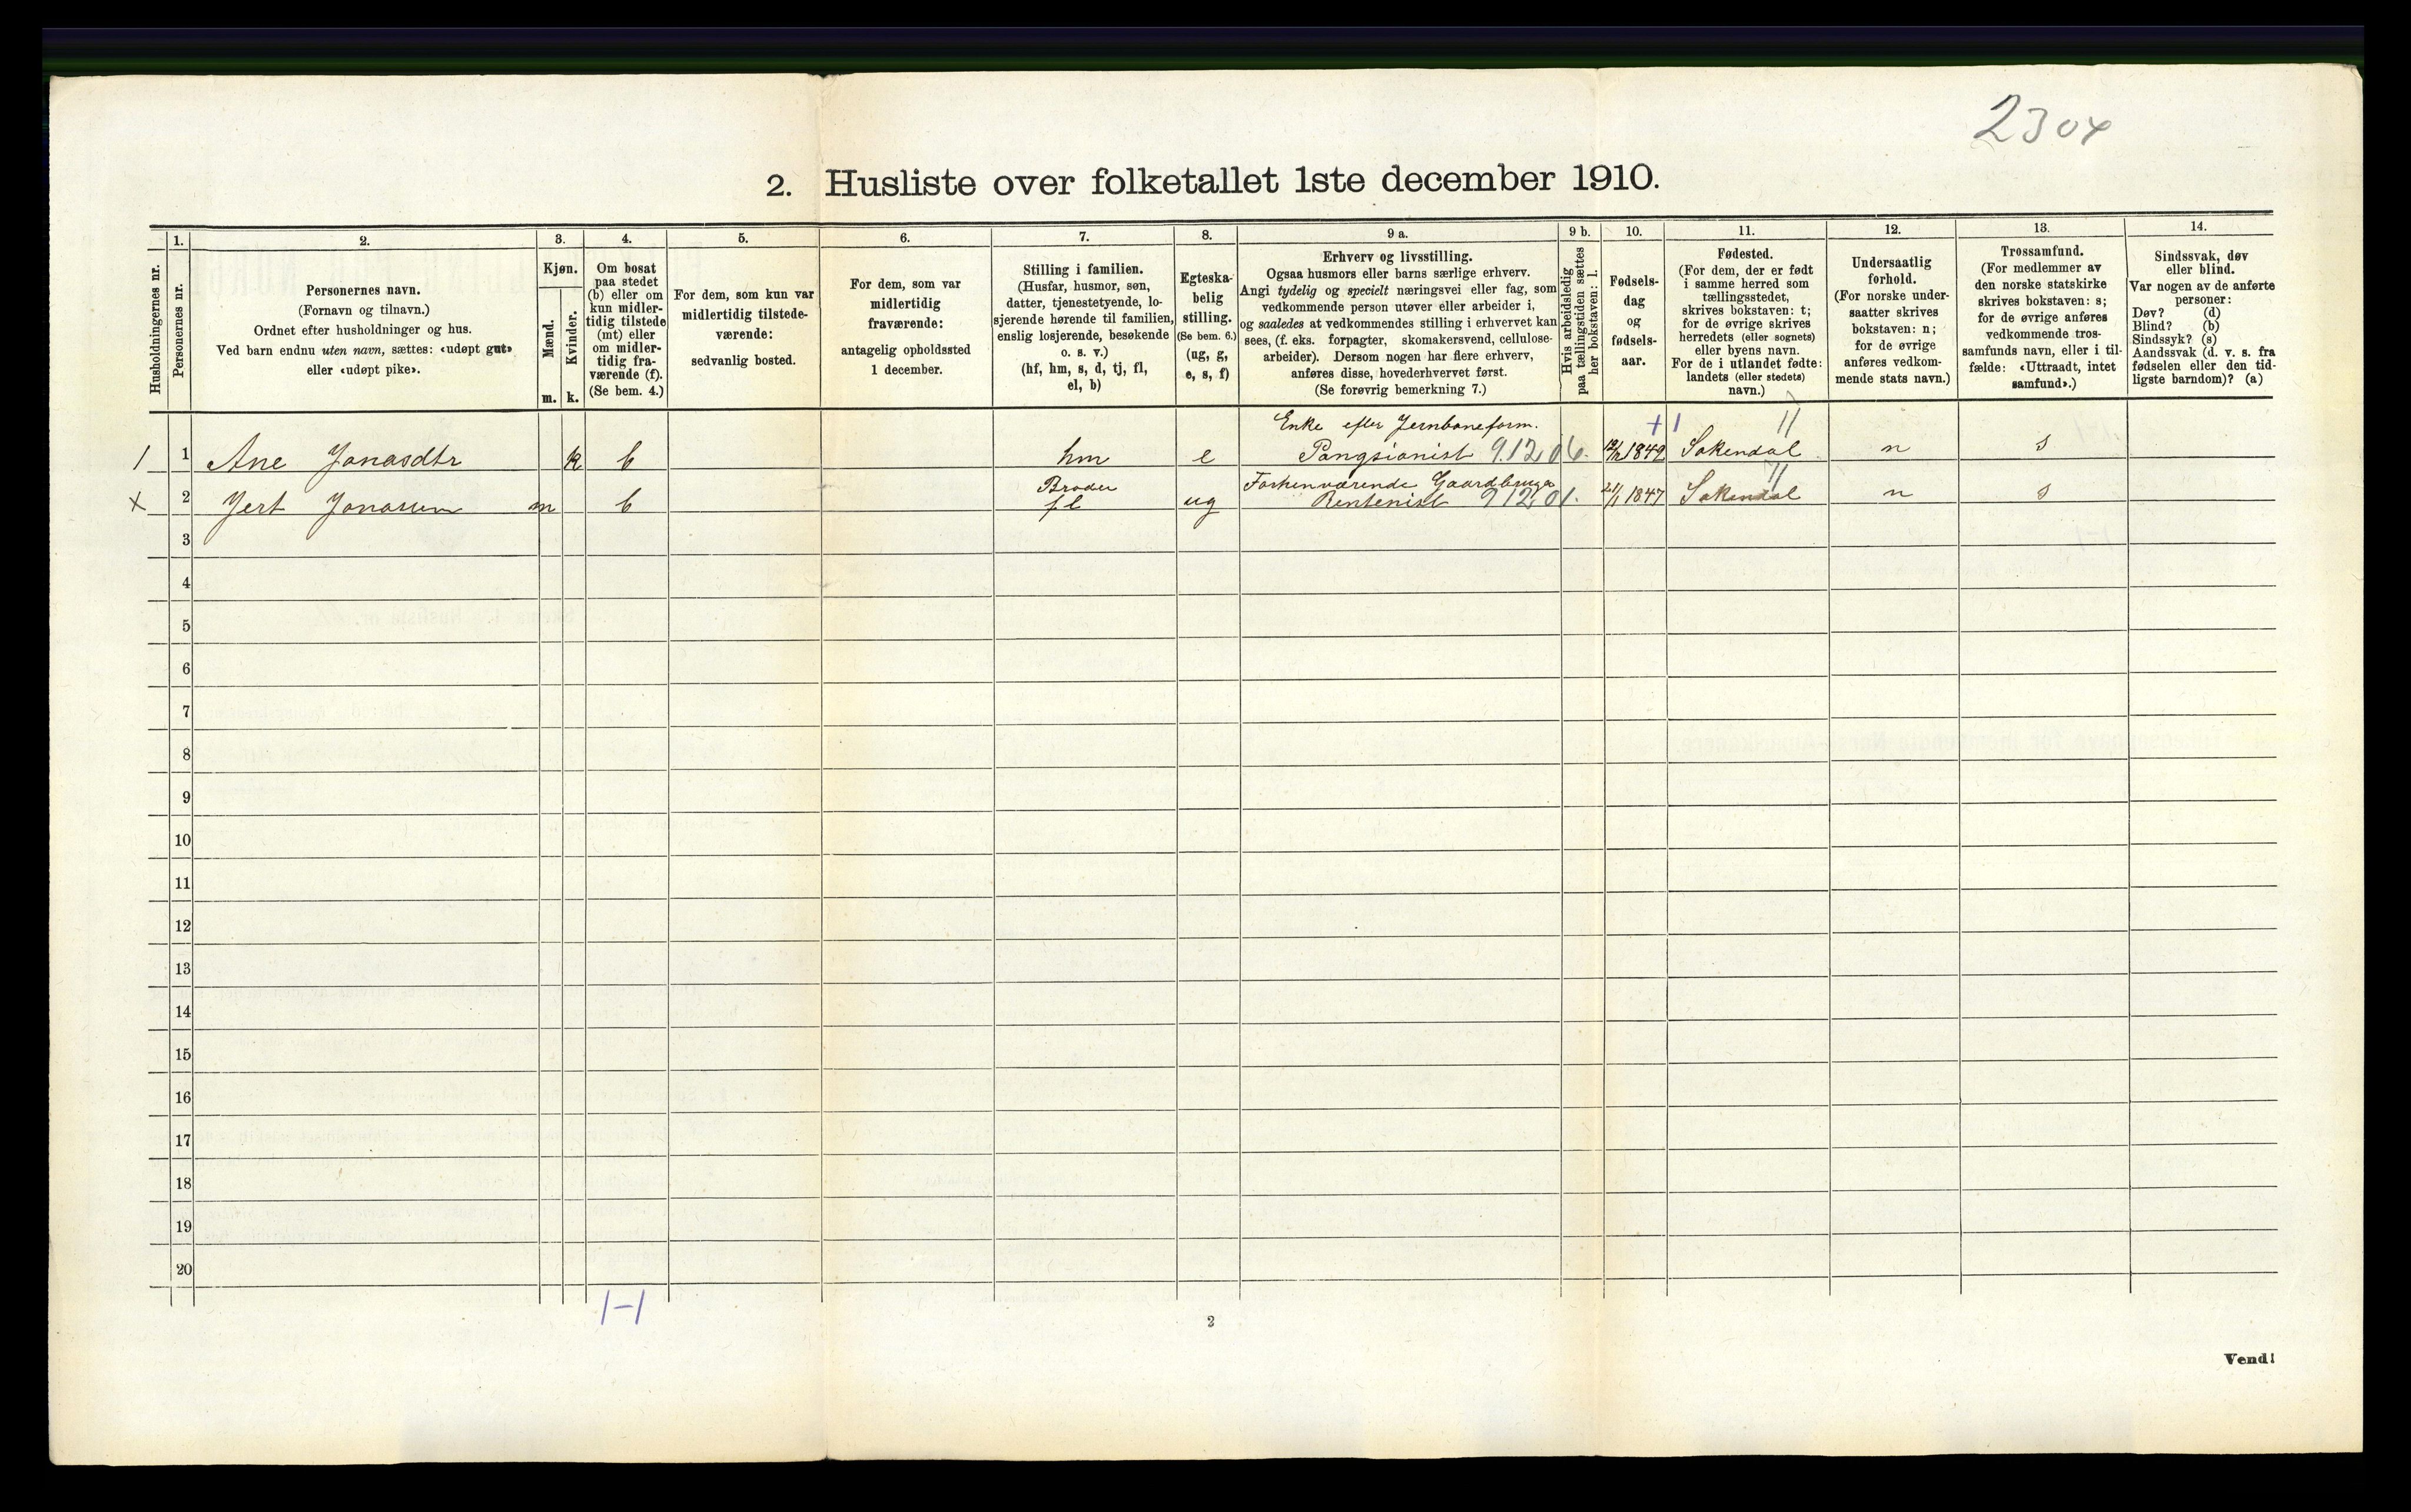 2304
2. Husliste over folketallet 1ste december 1910.
Husholdningernes nr.
1.
Personernes nr.
2.
Personernes navn.
(Fornavn og tilnavn.)
Ordnet efter husholdninger og hus.
Ved barn endnu uten navn, sættes: «udøpt gut»
eller «udøpt pike».
3.
Kjøn.
Mænd.
Kvinder.
m. k.
4.
Om bosat
paa stedet
(b) eller om
kun midler-
tidig tilstede
(mt) eller
om midler-
tidig fra-
værende (f).
(Se bem. 4.)
5.
For dem, som kun var
midlertidig tilstede-
værende:
sedvanlig bosted.
6.
For dem, som var
midlertidig
fraværende:
antagelig opholdssted
1 december.
7.
Stilling i familien.
(Husfar, husmor, søn,
datter, tjenestetyende, lo-
sjerende hørende til familien,
enslig losjerende, besøkende
o. s. v.)
(hf, hm, s, d, tj, fl,
el, b)
8.
Egteska-
belig
stilling.
(Se bem. 6.)
(ug, g,
e, s, f)
9 a.
Erhverv og livsstilling.
Ogsaa husmors eller barns særlige erhverv.
Angi tydelig og specielt næringsvei eller fag, som
vedkommende person utøver eller arbeider i,
og saaledes at vedkommendes stilling i erhvervet kan
sees, (f. eks. forpagter, skomakersvend, cellulose-
arbeider). Dersom nogen har flere erhverv,
anføres disse, hovederhvervet først.
(Se forøvrig bemerkning 7.)
9 b.
Hvis arbeidsledig
paa tællingstiden sættes
her bokstaven: l.
10.
Fødsels-
dag
og
fødsels-
aar.
11.
Fødested.
(For dem, der er født
i samme herred som
tællingsstedet,
skrives bokstaven: t;
for de øvrige skrives
herredets (eller sognets)
eller byens navn.
For de i utlandet fødte:
landets (eller stedets)
navn.)
12.
Undersaatlig
forhold.
(For norske under-
saatter skrives
bokstaven: n;
for de øvrige
anføres vedkom-
mende stats navn.)
13.
Trossamfund.
(For medlemmer av
den norske statskirke
skrives bokstaven: s;
for de øvrige anføres
vedkommende tros-
samfunds navn, eller i til-
fælde: «Uttraadt, intet
samfund».)
14.
Sindssvak, døv
eller blind.
Var nogen av de anførte
personer:
Døv? (d)
Blind? (b)
Sindssyk? (s)
Aandssvak (d. v. s. fra
fødselen eller den tid-
ligste barndom)? (a)
Enke efter Jernbaneform. +1 11
1 1 Ane Jonasdtr k b hm e Pangsionist 9.12 06. 1849 Sokendal n s
Broder Forhenværende Gaardbruger 11
x 2 Jert Jonassen m b fl ug Rentenist 912,01. 21/1 1847 Sokendal n s
3
4
5
6
7
8
9
10
11
12
13
14
15
16
17
18
19
20
1-1
2
Vend!